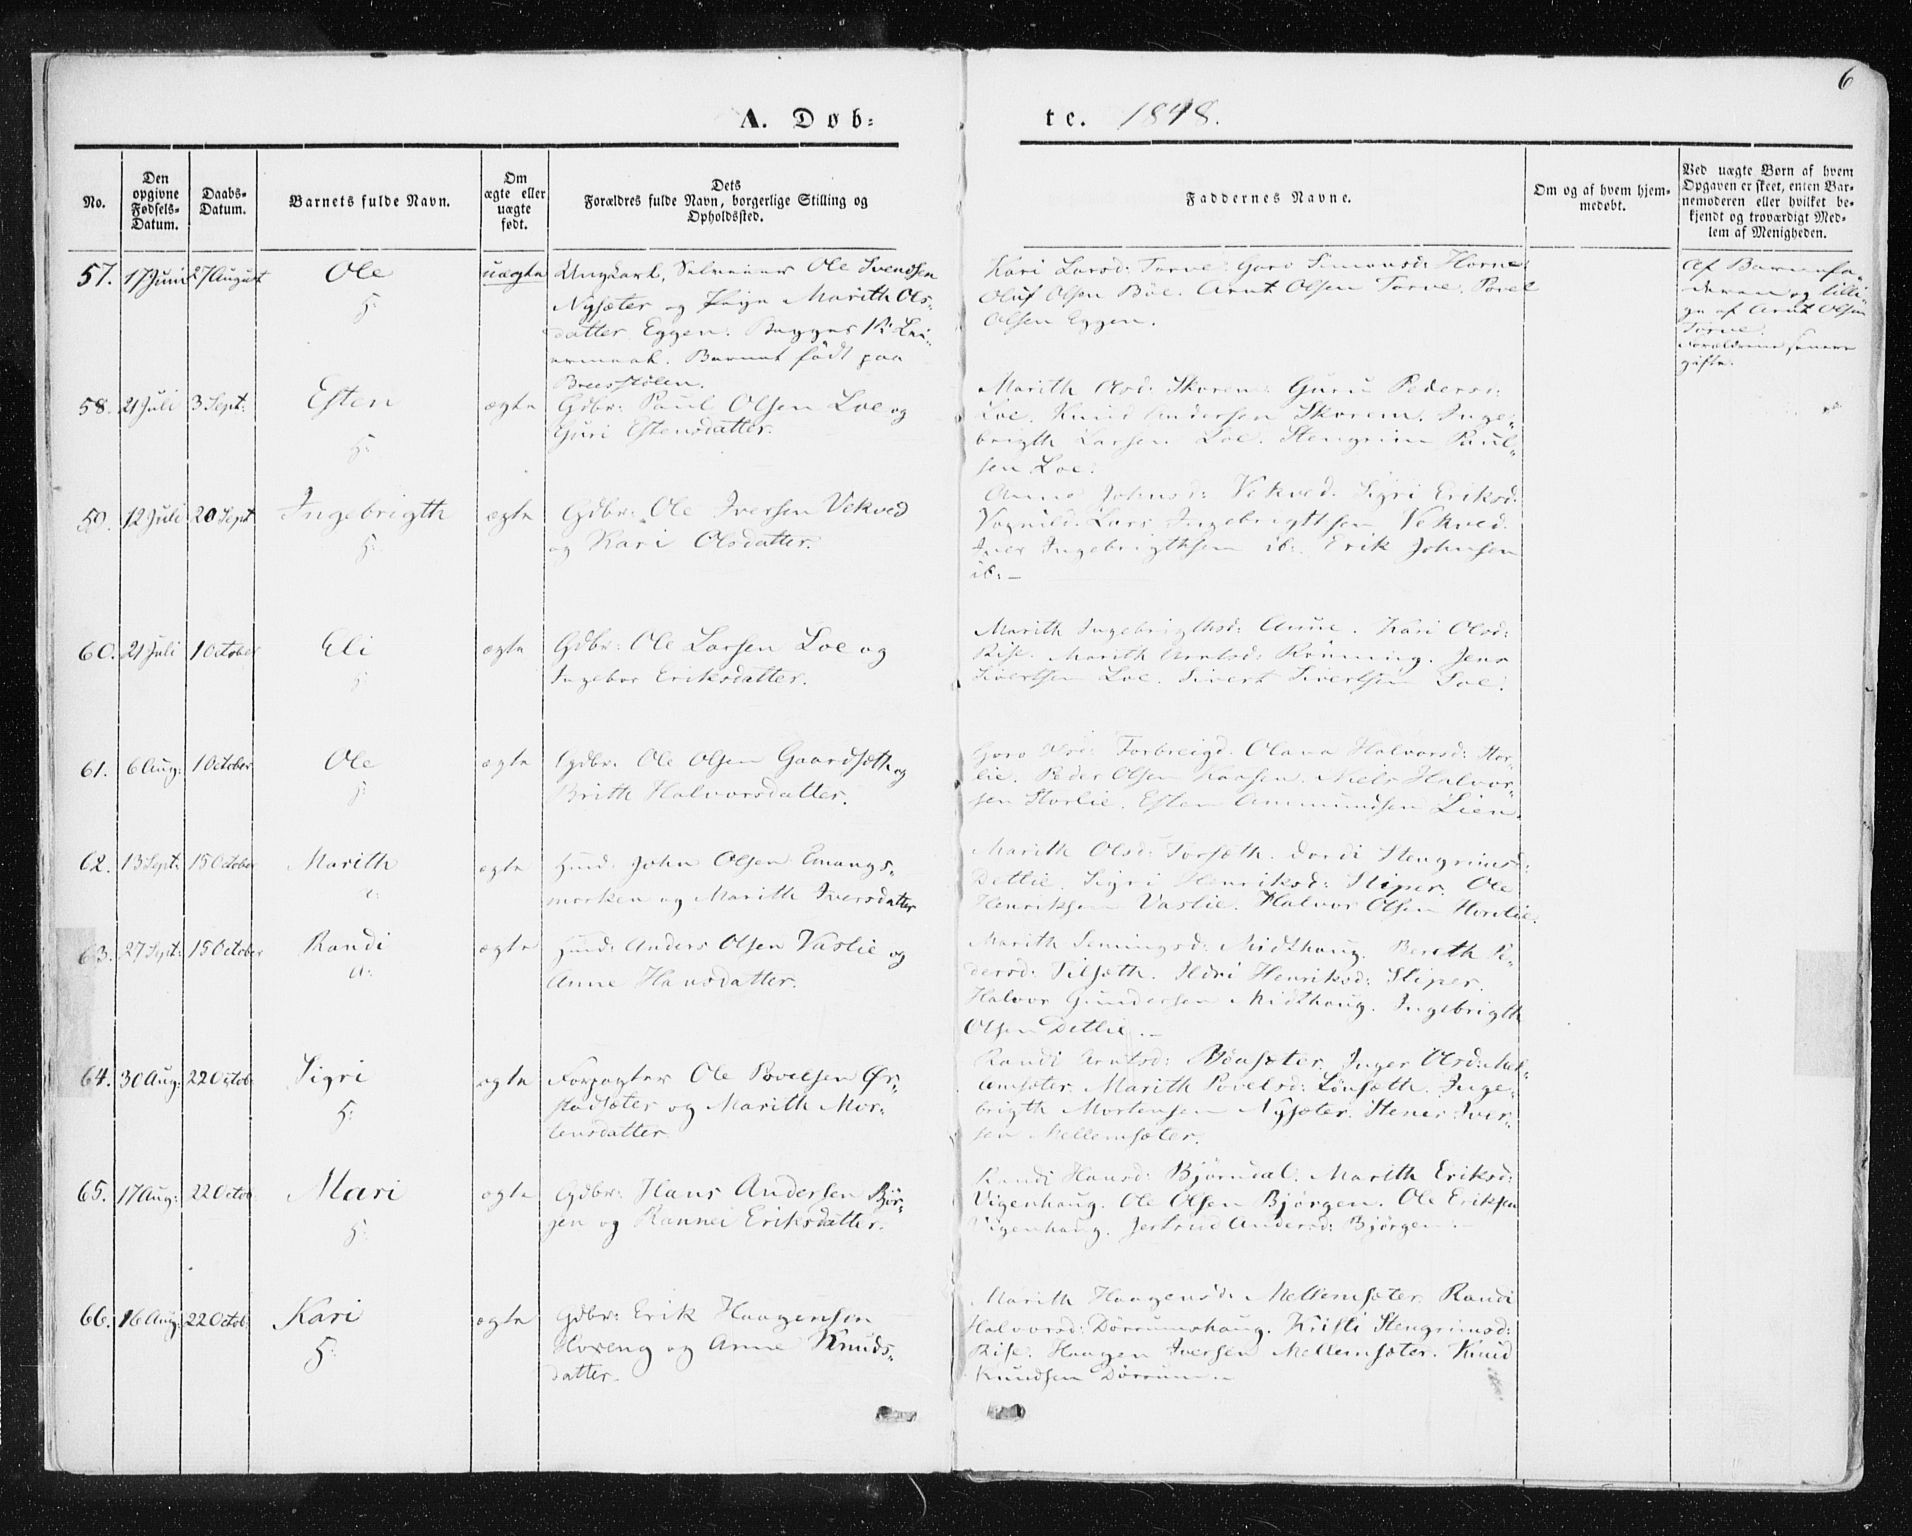 6
A. Døb-
te. 1848.
No.
Den opgivne Fødsels-Datum.
Daabs-Datum.
Barnets fulde Navn.
Om ægte eller uægte født.
Dets Forældres fulde Navn, borgerlige Stilling og Opholdssted.
Faddernes Navne.
Om og af hvem hjemmedøbt.
Ved uægte Børn af hvem Opgaven er skeet, enten Barnemoderen eller hvilket bekjendt og troværdigt Medlem af Menigheden.
57. 17 Juni 27 August Ole uægte Ungkarl, Ole Svendsen
H:
Nysæter og Pige Marith Ols-
datter Eggen. Begges
Barnet født paa
Kari Larsd: Torve. Goro Simonsd: Horne
Oluf Olsen Böe. Arnt Olsen Torve. Povel
Olsen Eggen.
Af Barnefa-
deren og tilli-
ge af Arnt Olsen
Torve.
Forældrene senere
gifte.
58. 21 Juli 3 Sept: Esten ægte Gdbr: Paul Olsen Loe og
H:
Guri Estensdatter.
Marith Olsd: Skorem. Guru Pedersd:
Loe. Knud Andersen Skorem. Inge-
brigth Larsen Loe. Stengrim Paul-
sen Loe.
59. 12 Juli 20 Sept Ingebrigth ægte Gdbr: Ole Iversen Vekved
H:
og Kari Olsdatter.
Anne Johnsd: Vekved. Sigri Eriksd:
Vognild. Lars Ingebrigtsen Vekved.
Iver Ingebrigthsen ib:. Erik Johnsen
ib:-
60. 21 Juli 1 October Eli ægte Gdbr: Ole Larsen Loe og
H:
Ingebor Eriksdatter.
Marith Ingebrigthsd: Aune. Kari Olsd:
Rise. Marith Arntsd: Rönning. Jens
Sivertsen Loe. Sivert Sivertsen Loe.
61. 6 Aug: 1 October Ole ægte Gdbr: Ole Olsen Gaardsæth og
H:
Brith Halvorsdatter.
Goro Olsd: Forbreigd. Olava Halvorsd: Stor-
lie. Peder Olsen Kaasen. Niels Halvor-
sen Storlie. Esten Ammundsen Lien.
62. 13 Sept: 15 October Marith ægte Huusd: John Olsen Emangs-
a:
morken og Marith Iversdatter
Marith Olsd: Torsæth. Dordi Stengrimsd:
Detlie. Sigri Henriksd: Stiper. Ole
Henriksen Vaslie. Halvor Olsen
63. 27 Sept: 15 October Randi ægte Huusd: Anders Olsen Vaslie og
a:
Anne Hansdatter.
Marith Semingsd: Midthaug. Bereth Pe-
dersd: Tilsæth. Henriksd: Stiper.
Halvor Gundersen Midthaug. Ingebrigth
Olsen Detlie.-
64. 30 Aug: 22 Octob: Sigri ægte Forpagter Ole Povelsen Ør-
H:
stadsæter og Marith Mor-
tensdatter.
Randi Arntsd: Inger Olsd: Mel-
lemsæter. Marith Povelsd: Lönsæth. Inge-
brigth Mortensen Nysæter. Stener Iver-
sen Mellemsæter.
65. 17 Aug: 22 Octob: Mari ægte Gdbr: Hans Andersen Bjør-
H:
gen og Rannei Eriksdatter.
Randi Hansd: Bjørndal. Marith Eriksd:
Vigenhaug. Ole Olsen Bjørgen. Ole Eriksen
Vigenhaug. Jertrud Andersd: Bjørgen.-
66. 16 Aug: 22 Octob: Kari ægte Gdbr: Erik Haagensen
H:
Horeng og Anne Knuds-
datter.
Marith Haagensd: Mellemsæter. Randi
Halvorsd: Dörrumshaug. Kristi Stengrimsd:
Rise. Haagen Iversen Mellemsæter. Knud
Knudsen Dörrum.-